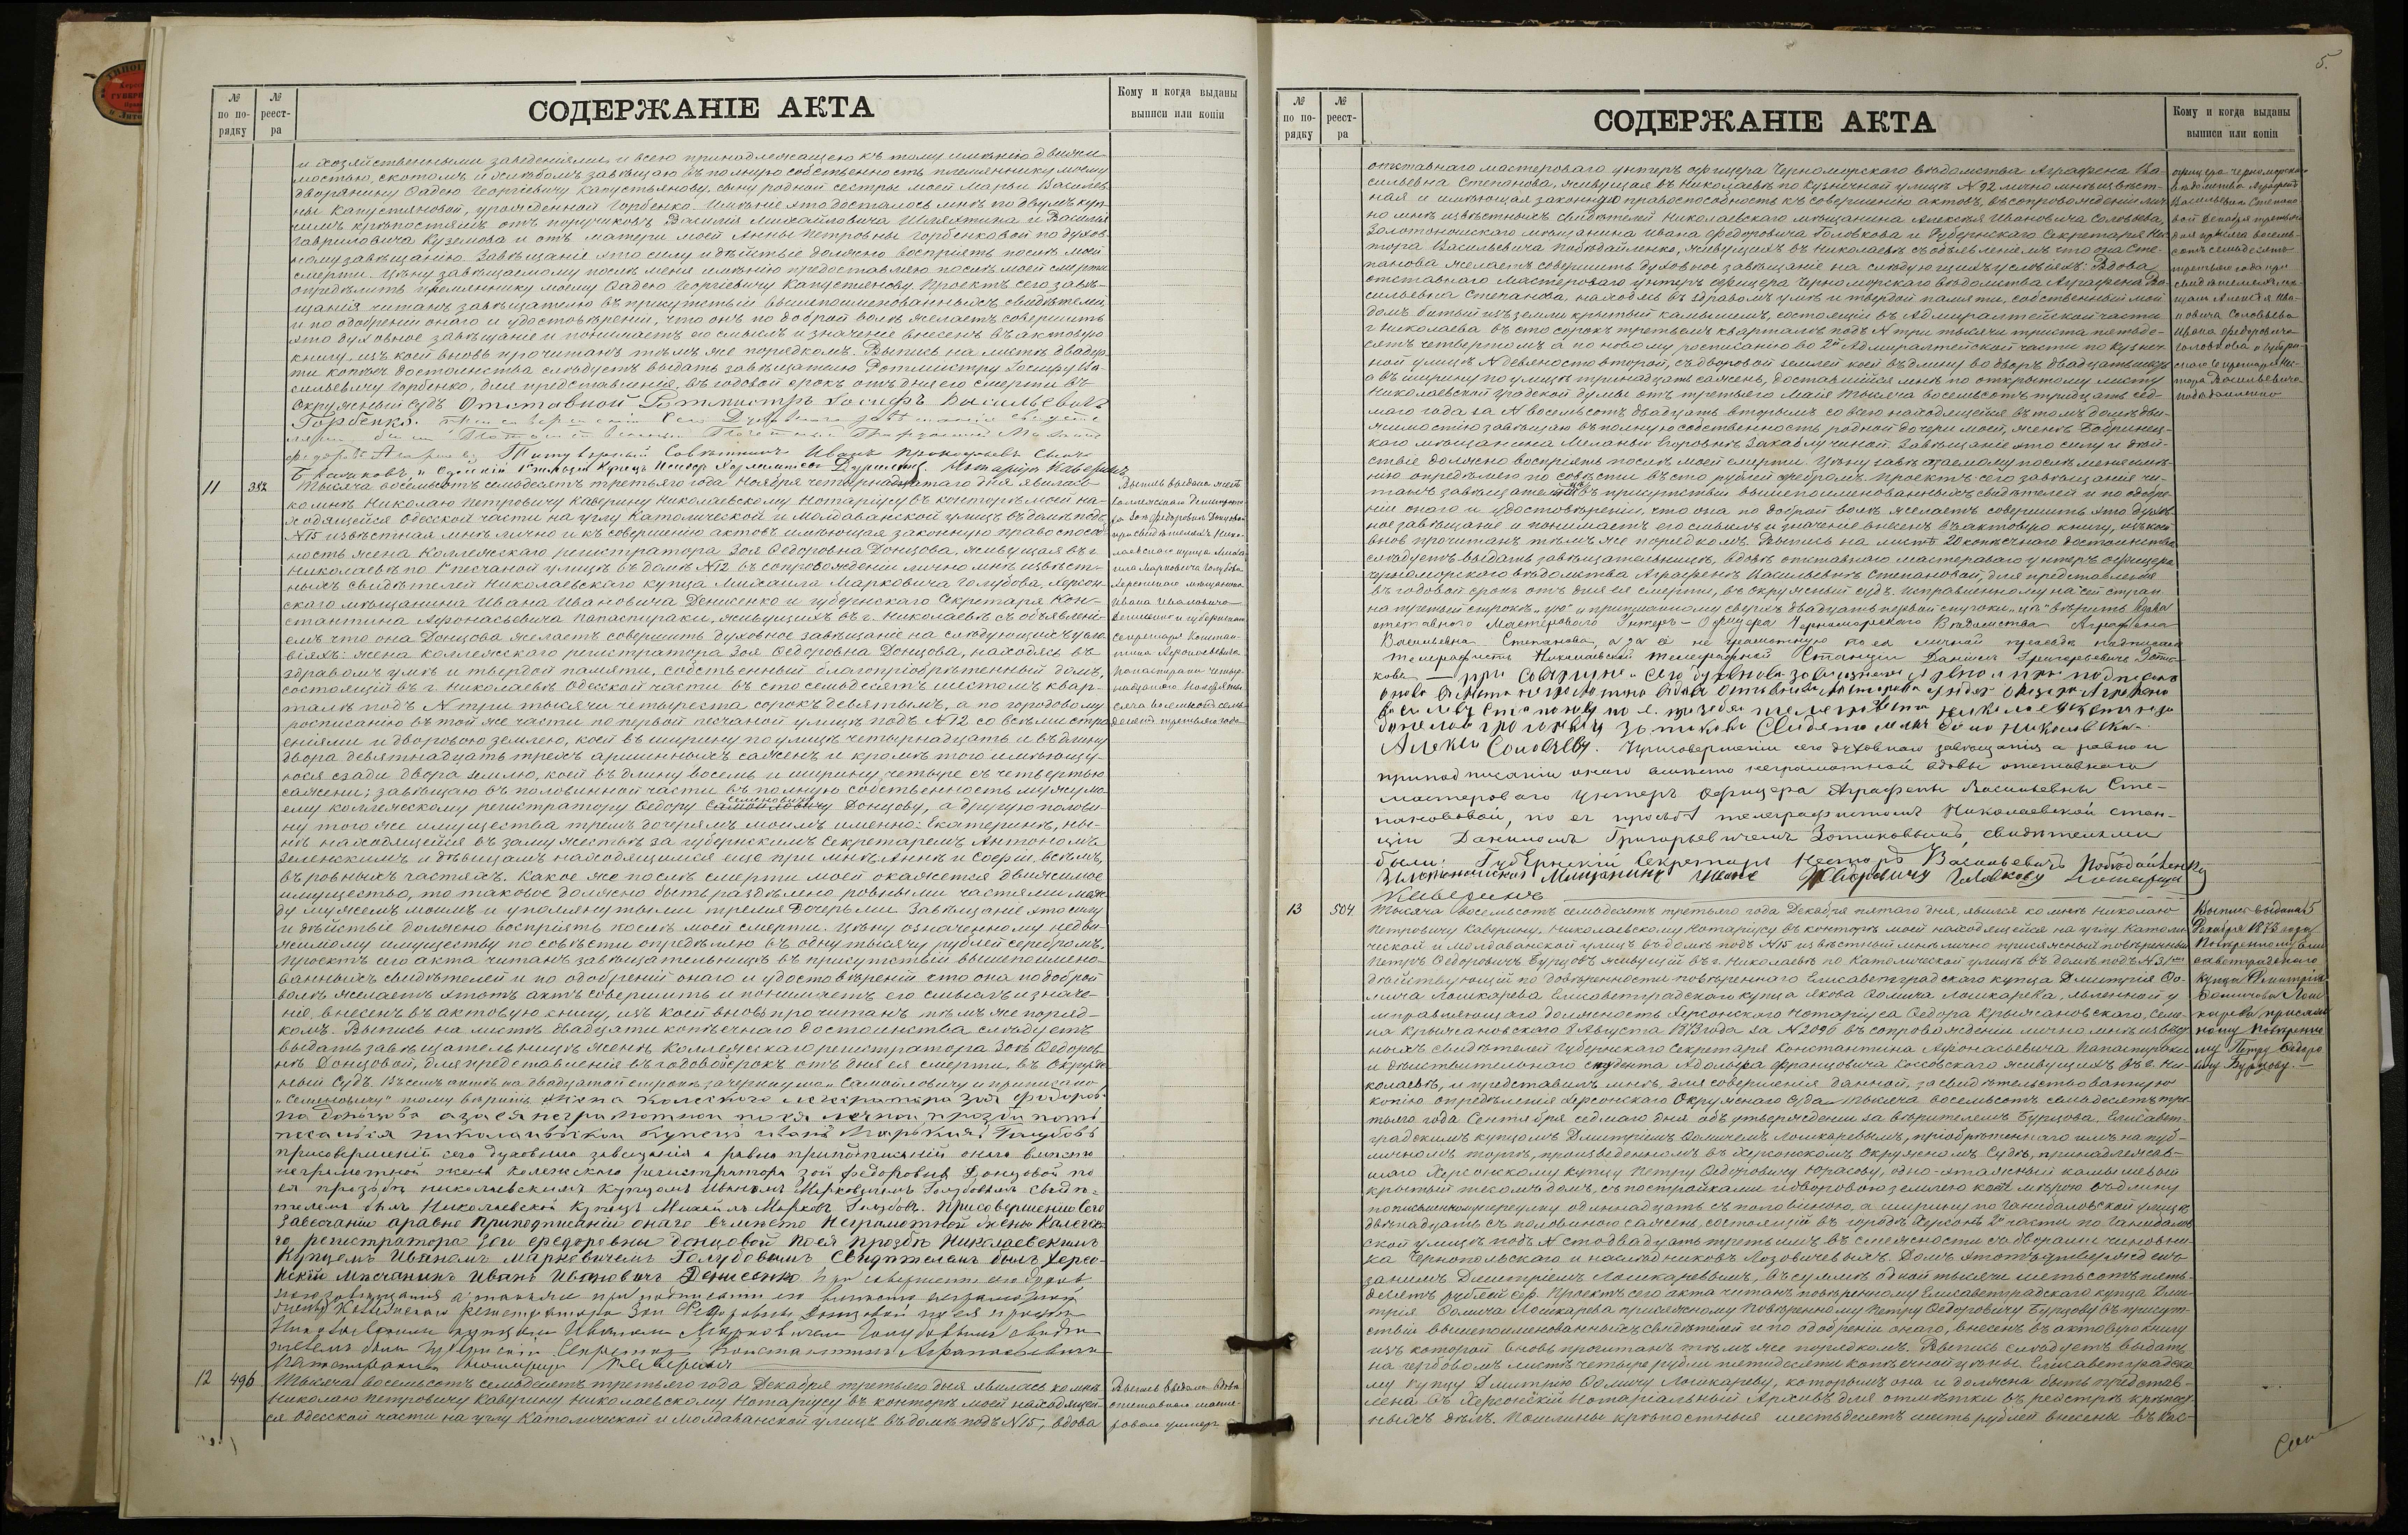 № по по-рядку
№ реест-ра
СОДЕРЖАНІЕ АКТА
Кому и когда выданы выписи или копіи
и хозяйственными заведеніями и всею принадлежащею къ тому имѣнію движи-
мостью, скотомъ и хлѣбомъ завѣщаю въ полную собственность племяннику моему
дворянину Фадею Георгіевичу Капустянову, сыну родной сестры моей Марьи Васильев-
ны Капустяновой, урожденной Горбенко. Имѣніе это досталось мнѣ по двумъ куп-
чимъ крѣпостямъ отъ поручиковъ Василія Михайловича Шляхтина и Василія
Гавриловича Куземова и отъ матери моей Анны Петровны Горбенковой по духов-
ному завѣщанію. Завѣщаніе это силу и дѣйствіе должно воспріять послѣ моей
смерти. Цѣну завѣщаемому послѣ меня имѣнію предоставляю послѣ моей смерти
опредѣлить племяннику моему Фадею Георгіевичу Капустянову. Проектъ сего завѣ-
щанія читанъ завѣщателю въ присутствіи вышепоименованныхъ свидѣтелей
и по одобреніи онаго и удостовѣреніи, что онъ по доброй волѣ желаетъ совершить
это духовное завѣщаніе и понимаетъ его смыслъ и значеніе внесенъ въ актовую
книгу, изъ коей вновь прочитанъ тѣмъ же порядкомъ. Выпись на листѣ двадца-
ти копѣеч. достоинства слѣдуетъ выдать завѣщателю Ротмистру Іосифу Ва-
сильевичу Горбенко, для представленія, въ годовой срокъ отъ дня его смерти въ
Окружный Судъ Отставной Ротмистръ Іосифъ Васильевичъ
Горбенко. При совершеніи сего Духовнаго завѣщанія свидѣте-
лями были
Титулярный Совѣтникъ Иванъ Прокофьевъ сынъ
Нотаріусъ Каверинъ
11
382
Тысяча восемьсотъ семьдесятъ третьяго года Ноября четырнадцатаго дня явилась
ко мнѣ Николаю Петровичу Каверину Николаевскому Нотаріусу въ конторѣ моей на-
ходящейся Одесской части на углу Католической и Молдаванской улицъ въ домѣ подъ
№15 извѣстная мнѣ лично и къ совершенію актовъ имѣющая законную правоспособ-
ность жена Коллежскаго регистратора Зоя Федоровна Донцова, живущая въ г.
Николаевѣ по 1 песчаной улицѣ въ домѣ №12 въ сопровожденіи лично мнѣ извѣст-
ныхъ свидѣтелей Николаевскаго купца Михаила Марковича Голубова, Херсон-
скаго мѣщанина Ивана Ивановича Денисенко и губернскаго Секретаря Кон-
стантина Афонасьевича Папаспираки, живущихъ въ г. Николаевѣ съ объявлені-
емъ что она Донцова желаетъ совершить духовное завѣщаніе на слѣдующихъ усло-
віяхъ: жена коллежскаго регистратора Зоя Федоровна Донцова, находясь въ
здравомъ умѣ и твердой памяти, собственный благопріобрѣтенный домъ,
состоящій въ г. Николаевѣ Одесской части въ сто семьдесятъ шестомъ квар-
талѣ подъ № три тысячи четыреста сорокъ девятымъ, а по городовому
росписанію въ той же части по первой песчаной улицѣ подъ №12 со всѣми стро-
еніями и дворовою землею, коей въ ширину по улицѣ четырнадцать и въ длину
двора девятнадцать трехъ аршинныхъ саженъ и кромѣ того имѣющую-
юся сзади двора землю, коей въ длину восемь и ширину четыре съ четвертью
сажени; завѣщаю въ половинной части въ полную собственность мужу мо-
ему коллежскому регистратору Федору Самойловичу Семеновичу Донцову, а другую полови-
ну того же имущества тремъ дочерямъ моимъ именно: Екатеринѣ, ны-
нѣ находящейся въ замужествѣ за губернскимъ Секретаремъ Антономъ
Зеленскимъ и дѣвицамъ находящимся еще при мнѣ, Аннѣ и Софіи, всѣмъ,
въ ровныхъ частяхъ. Какое же послѣ смерти моей окажется движимое
имущество, то таковое должно быть раздѣлено ровными частями меж-
ду мужемъ моимъ и упомянутыми тремя Дочерьми. Завѣщаніе это силу
и дѣйствіе должно воспріять послѣ моей смерти. Цѣну означенному недви-
жимому имуществу по совѣсти опредѣляю въ одну тысячу рублей серебромъ.
Проектъ сего акта читанъ завѣщательницѣ въ присутствіи вышепоимено-
ванныхъ свидѣтелей и по одобреніи онаго и удостовѣреніи что она по доброй
волѣ желаетъ этотъ актъ совершить и понимаетъ его смыслъ и значе-
ніе, внесенъ въ актовую книгу, изъ коей вновь прочитанъ тѣмъ же поряд-
комъ. Выпись на листѣ двадцати копѣечнаго достоинства слѣдуетъ
выдать завѣщательницѣ женѣ Коллежскаго регистратора Зоѣ Федоров-
нѣ Донцовой, для представленія въ годовой срокъ отъ дня ея смерти, въ Окруж-
ный Судъ. Въ семъ актѣ на двадцатой строкѣ зачеркнуто „Самойловичу“ и приписано
„Семеновичу“ тому вѣрить. Жена Колескаго легистратора Зоя Федоров-
на Донцова а за ея неграмотной по ея личной прозби подпи-
писался николаивской купецъ Иванъ Марковичъ Голубовъ
присовершеніи сего духовнаго завещанія а равно приподписаніи онаго вместо
неграмотной жены колежскаго регистратора Зои Федоровны Донцовой по
ея прозьбѣ николаевскимъ Купцомъ Иваномъ Марковичемъ Голубовымъ свидѣ-
телемъ былъ Николаевской Купецъ Михайлъ Марковъ Голубовъ. Присовершеніи сего
Завесчаніи аравно приподписаніи онаго въмѣсто Неграмотной жены Колегск
го регистратора Зои федоровны донцовой поея прозбѣ Николаевскимъ
Купцомъ Иваномъ Марковичемъ Голубовымъ Свидѣтелемъ былъ Херсо-
нскій Мѣсчанинъ Иванъ Ивановичъ Денисенко При совершеніи сего духов-
наго завѣщанія а также при подписаніи его вмѣсто неграмотной
жены Коллежскаго регистратора Зои Федоровны Донцовой по ея просьбѣ
Николаевскимъ купцомъ Иваномъ Марковичемъ Голубовымъ свидѣ-
телемъ былъ Губернскій Секретарь Константинъ Афанасьевичъ
Папаспираки Нотаріусъ Каверинъ
Выпись выдана женѣ
Коллежскаго Регистрато-
ра Зоѣ Федоровнѣ Донцовой
при свидѣтеляхъ Нико-
лаевскаго купца Миха-
ила Марковича Голубова
Херсонскаго мѣщанина
Ивана Ивановича
Денисенко и губернскаго
Секретаря Констан-
тина Афонасьевича
Папаспираки четыр-
надцатаго Ноября ты-
сяча восемьсотъ семь-
десятъ третьяго года
12
496
Тысяча восемьсотъ семьдесятъ третьяго года Декабря третьяго дня явилась ко мнѣ
Николаю Петровичу Каверину Николаевскому Нотаріусу въ конторѣ моей находящей-
ся Одесской части на углу Католической и Молдаванской улицъ въ домѣ подъ №15, вдова
Выпись выдана вдовѣ
отставнаго масте-
роваго унтеръ
5.
№ по по-рядку
№ реест-ра
СОДЕРЖАНІЕ АКТА
Кому и когда выданы выписи или копіи
отставнаго мастероваго унтеръ офицера Черноморскаго вѣдомства Аграфена Ва-
сильевна Степанова, живущая въ Николаевѣ по Кузнечной улицѣ №92 лично мнѣ извѣст-
ная и имѣющая законную правоспособность къ совершенію актовъ, въ сопровожденіи лич-
но мнѣ извѣстныхъ свидѣтелей Николаевскаго мѣщанина Алексѣя Ивановича Соловьева,
Золотоношскаго мѣщанина Ивана Федоровича Головкова и Губернскаго Секретаря Нес-
тора Васильевича Побѣдайленко, живущихъ въ Николаевѣ съ объявленіемъ что она Сте-
панова желаетъ совершить духовное завѣщаніе на слѣдующихъ условіяхъ: Вдова
отставнаго Мастероваго унтеръ офицера Черноморскаго вѣдомства Аграфена Ва-
сильевна Степанова, находясь въ здравомъ умѣ и твердой памяти, собственный мой
домъ битый изъ земли крытый камышемъ, состоящій въ Адмиралтейской части
г. Николаева въ сто сорокъ третьемъ кварталѣ подъ № три тысячи триста пятьде-
сятъ четвертомъ а по новому росписанію во 2й Адмиралтейской части по Кузнеч-
ной улицѣ № девяносто второй, съ дворовой землей коей въ длину во дворъ двадцать шесть
а въ ширину по улицѣ тринадцать саженъ, доставшійся мнѣ по открытому листу
Николаевской градской Думы отъ третьяго Мая тысяча восемьсотъ тридцать седь-
маго года за № восемьсотъ двадцать вторымъ со всею находящеюся въ томъ домѣ дви-
жимостію завѣщаю въ полную собственность родной дочери моей, женѣ Бобринец-
каго мѣщанина Меланьи Егоровнѣ Захаблучиной. Завѣщаніе это силу и дѣй-
ствіе должно воспріять послѣ моей смерти. Цѣну завѣщаемому послѣ меня имѣ-
нію опредѣляю по совѣсти въ сто рублей серебромъ. Проектъ сего завѣщанія чи-
танъ завѣщательницѣ въ присутствіи вышепоименованныхъ свидѣтелей и по одобре-
ніи онаго и удостовѣреніи, что она по доброй волѣ желаетъ совершить это духов-
ное завѣщаніе и понимаетъ его смыслъ и значеніе внесенъ въ актовую книгу, изъ коей
вновь прочитанъ тѣмъ же порядкомъ. Выпись на листѣ 20 копѣечнаго достоинства
слѣдуетъ выдать завѣщательницѣ, вдовѣ отставнаго мастероваго унтеръ офицера
Черноморскаго вѣдомства Аграфенѣ Васильевнѣ Степановой, для представленія
въ годовой срокъ отъ дня ея смерти, въ окружный судъ. Исправленному на сей стран.
на третьей строкѣ „ую“ и приписанному сверхъ двадцать первой строки „цѣ“ вѣрить. Вдова
отставнаго Мастероваго Унтеръ-Офицера Черноморскаго Вѣдомства Аграфена
Васильевна Степанова, а за её не грамотную по ея личной просьбѣ подписался
телеграфистъ Николаевской телеграфной Станціи Даніилъ Григорьевичъ Зоти-
ковъ
Алексѣй Соловьевъ. При совершеніи сего духовнаго завѣщанія а равно и
при подписаніи онаго вмѣсто неграмотной вдовы отставнаго
мастероваго унтеръ офицера Аграфены Васильевны Сте-
пановой, по ея просьбѣ телеграфистомъ Николаевской стан-
ціи Даниломъ Григорьевичемъ Зотиковымъ, свидѣтелями
были: Губернскій Секретарь Несторъ Васильевичъ Побѣдайленко
Золотоношскій Мищанинъ Иванъ Федоровичъ Головковъ Нотаріусъ
Каверинъ
офицера Черноморскаго
вѣдомства Аграфенѣ
Васильевнѣ Степано-
вой Декабря третьяго
дня тысяча восемь-
сотъ семьдесятъ
третьяго года при
свидѣтеляхъ мѣ-
щанъ Алексѣя Ива-
новича Соловьева
Ивана Федоровича
Головкова и Губерн-
скаго Секретаря Нес-
тора Васильевича
Побѣдайленко
13
504
Тысяча восемьсотъ семьдесятъ третьяго года Декабря пятаго дня, явился ко мнѣ Николаю
Петровичу Каверину, Николаевскому Нотаріусу въ конторѣ моей находящейся на углу Католи-
ческой и Молдаванской улицъ въ домѣ подъ №15 извѣстный мнѣ лично присяжный повѣренный
Петръ Федоровичъ Бурцовъ живущій въ г. Николаевѣ по Католической улицѣ въ домѣ подъ №31
дѣйствующій по довѣренности повѣреннаго Елисаветградскаго купца Дмитрія Фо-
мича Лошкарева Елисаветградскаго купца Якова Фомича Лошкарева, явленной у
управляющаго должность Херсонскаго Нотаріуса Федора Крыжановскаго, Семе-
на Крыжановскаго 8 Августа 1873 года за №2096 въ сопровожденіи лично мнѣ извѣст-
ныхъ свидѣтелей Губернскаго Секретаря Константина Афонасьевича Папаспираки
и дѣйствительнаго студента Адольфа Францовича Коссовскаго живущихъ въ г. Ни-
колаевѣ, и представилъ мнѣ, для совершенія данной, засвидѣтельствованную
копію опредѣленія Херсонскаго Окружнаго Суда тысяча восемьсотъ семьдесятъ тре-
тьяго года Сентября седьмаго дня объ утвержденіи за вѣрителемъ Бурцова, Елисавет-
градскимъ купцомъ Дмитріемъ Фомичемъ Лошкаревымъ, пріобрѣтеннаго имъ на пуб-
личномъ торгѣ, произведенномъ въ Херсонскомъ Окружномъ Судѣ, принадлежав-
шаго Херсонскому купцу Петру Федоровичу Юрасову, одно-этажный камышевый
крытый тесомъ домъ, съ постройками и дворовою землею коей мѣрою въ длину
по переулку одиннадцать съ половиною, а ширину по Ганибаловской улицѣ
двѣнадцать съ половиною саженъ, состоящій въ городѣ Херсонѣ 2й части по Ганибалов-
ской улицѣ подъ № сто двадцать третьимъ въ смежности съ дворами чиновни-
ка Чернопольскаго и наслѣдниковъ Лозовичевыхъ. Домъ этотъ утвержденъ
за нимъ Дмитріемъ Лошкаревымъ, въ суммѣ одной тысячи шестьсотъ пять-
десятъ рублей сер. Проектъ сего акта читанъ повѣренному Елисаветградскаго купца Дми-
трія Фомича Лошкарева присяжному повѣренному Петру Федоровичу Бурцову въ присут-
ствіи вышепоименованныхъ свидѣтелей и по одобреніи онаго, внесенъ въ актовую книгу
изъ которой вновь прочитанъ тѣмъ же порядкомъ. Выпись слѣдуетъ выдать
на гербовомъ листѣ четыре рубли пятидесяти копѣечной цѣны. Елисаветградско-
му купцу Дмитрію Фомичу Лошкареву, которымъ она и должна быть представ-
лена въ Херсонскій Нотаріальный Архивъ для отмѣтки въ реестрѣ крѣпост-
ныхъ дѣлъ. Пошлины крѣпостныя шестьдесятъ шесть рублей внесены въ Каз-
Выпись выдана 5
Декабря 1873 года
Повѣренному Ели-
саветградскаго
купца Дмитрія
Фомичева Лош-
карева присяж-
ному Повѣренно-
му Петру Федоро-
вичу Бурцову.